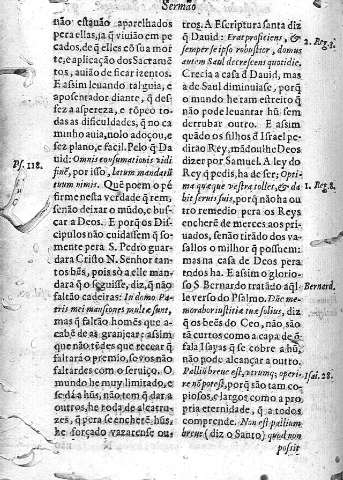 Sermão
não estauão aparelhados
pera ellas, ja q̃ viuião em pe
cados, de q̃ elles cõ sua mor
te, e aplicação dos Sacramẽ
tos, auião de ficar izentos.
E assim leuando tal guia, e
aposentador diante, q̃ des
fez a aspereza, e rõpeo to
das as dificuldades, q̃ no ca
minho auia, nolo adoçou, e
fez plano, e facil. Pelo q̃ Da
uid: Omnis consumationis vidi
finẽ, por isso, latum mandatũ
tuum nimis. Quẽ poem o pé
firme nesta verdade q̃ rem,
senão deixar o mũdo, e bus-
car a Deos. E porq̃ os Dis-
cipulos não cuidassem q̃ so
mente pera S. Pedro guar-
dara Cristo N. Senhor tan-
tos bẽs, pois só a elle man-
dara q̃ o seguisse, diz, q̃ não
faltão cadeiras: In domo Pa-
tris mei mansiones multæ sunt,
mas q̃ faltão homẽs que a-
cabẽ de as granjear: assim
que não tẽdes que recear q̃
faltará o premio, se vos não
faltardes com o seruiço. O
mundo he muy limitado, e
se dá a hũs, não tem q̃ dar a
outros, he roda de alcatru-
zes, q̃ pera se encherẽ hũs,
he forçado vazarense ou-
Ps. 118.
tros. A Escriptura santa diz
q̃ Dauid: Erat proficiens, &
semper se ipso robustior, domus
autem Saul decrescens quotidie.
Crecia a casa d̃ Dauid, mas
a de Saul diminuiase, porq̃
o mundo he tam estreito q̃
não pode leuantar hũ sem
derrubar outro. E assim
quãdo os filhos d̃ Israel pe-
dirão Rey, mãdoulhe Deos
dizer por Samuel. A ley do
Rey q̃ pedis, ha de ser; Opti-
ma quæque vestra tollet, & da
bit seruis suis, porq̃ não ha ou
tro remedio pera os Reys
encherẽ de merces aos pri-
uados, senão tirãdo dos va-
sallos o milhor q̃ possuem:
mas na casa de Deos pera
todos ha. E assim o glorio-
so S Bernardo tratãdo aq̃l-
le verso do Psalmo. Dñe me-
morabor iustitiæ tuæ solius, diz
q̃ os beẽs do Ceo, não são
tã curtos como a capa de q̃
fala Isayas q̃ se cobre a hũ,
não pode alcançar a outro.
Palliũ breue est, vtrumq; operi-
re nõ potest, porq̃ são tam co-
piosos, e largos como a pro
pria eternidade, q̃ a todos
comprende. Non est pallium
breue (diz o Santo) quod non
possit
2. Reg. 3.
1. Reg. 8.
Bernard.
Isai. 28.